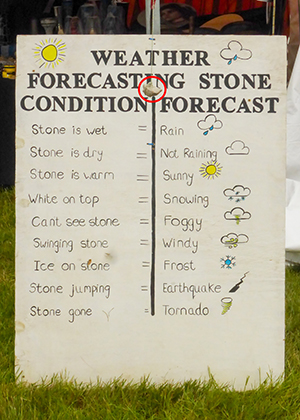 WEATHER
FORECASTING STONE
CONDITION FORECAST
Stone is wet = Rain
Stone is dry = Not Raining
Stone is warm = Sunny
White on top = Snowing
Cant see stone = Foggy
Swinging stone = Windy
Ice on stone = Frost
Stone jumping = Earthquake
Stone gone = Tornado